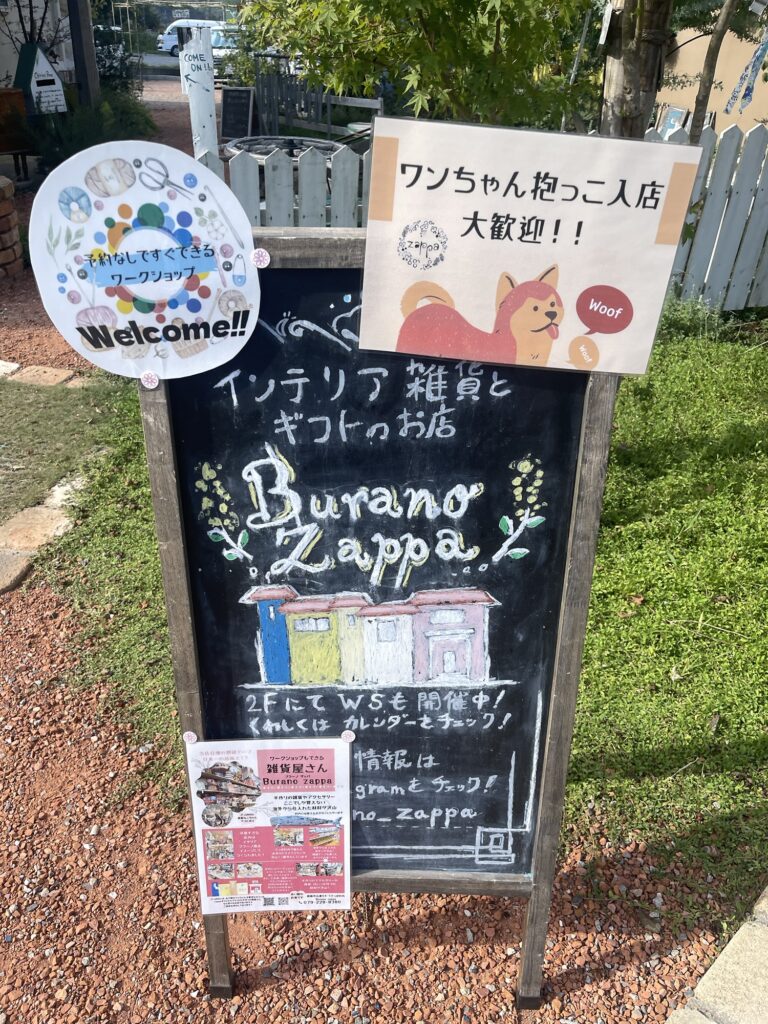 COME
ON!!
予約なしですぐできる
ワークショップ
Welcome!!
ワンちゃん抱っこ入店
大歓迎!!
zappa
Woof
Woof
インテリア雑貨と
ギフトのお店
Burano
Zappa
2FにてWSも開催中!
くわしくはカレンダーをチェック!
情報は
gramをチェック!
no_zappa
ワークショップもできる
雑貨屋さん
Burano zappa
手作りの雑貨やアクセサリー
ここでしか買えない
079-228-9380